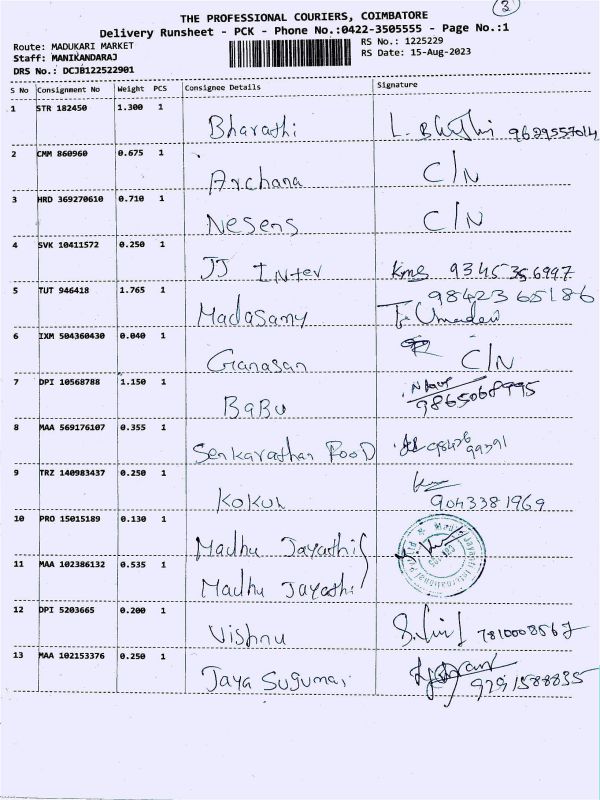 3
THE PROFESSIONAL COURIERS, COIMBATORE
Delivery Runsheet - PCK - Phone No.:0422-3505555 - Page No.:1
Route: MADUKARI MARKET
RS No.: 1225229
Staff: MANIKANDARAJ
RS Date: 15-Aug-2023
DRS No.: DCJB122522901
S No Consignment No Weight PCS Consignee Details Signature
1 STR 182450 1.300 1 Bharathi L. Bharthi 9629557014
2 CMM 860960 0.675 1 Archana C/N
3 HRD 369270610 0.710 1 Nesens C/N
4 SVK 10411572 0.250 1 JJ Inter 9345356997
5 TUT 946418 1.765 1 Madasamy 9842365186
Umadevi
6 IXM 504360430 0.040 1 Ganasan C/N
7 DPI 10568788 1.150 1 BaBu 9865068995
8 MAA 569176107 0.355 1 Senkarathan FooD
9 TRZ 140983437 0.250 1 Kokul 9043381969
10 PRO 15015189 0.130 1 Madhu Jayathi
11 MAA 102386132 0.535 1 Madhu Jayathi
12 DPI 5203665 0.200 1 Vishnu 7810008567
13 MAA 102153376 0.250 1 Jaya Sugumar 9791588835